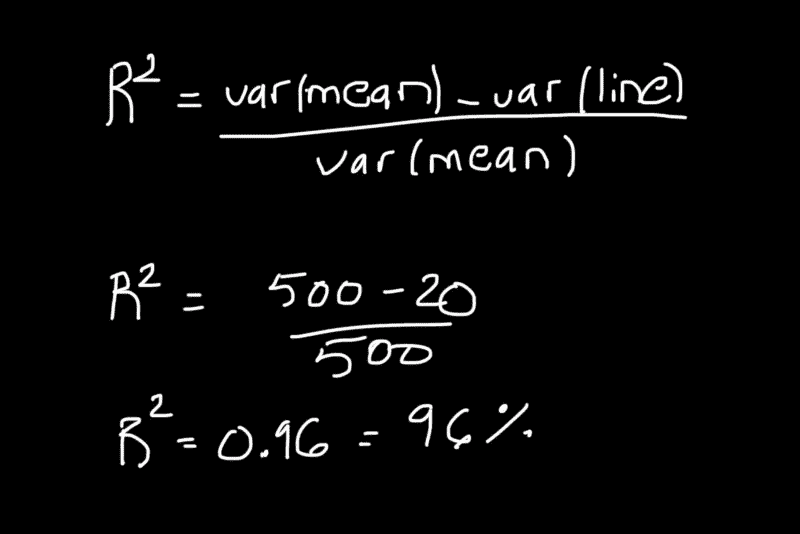 R² = var(mean) - var(line)
var(mean)
R² = 500 - 20
500
R² = 0.96 = 96%